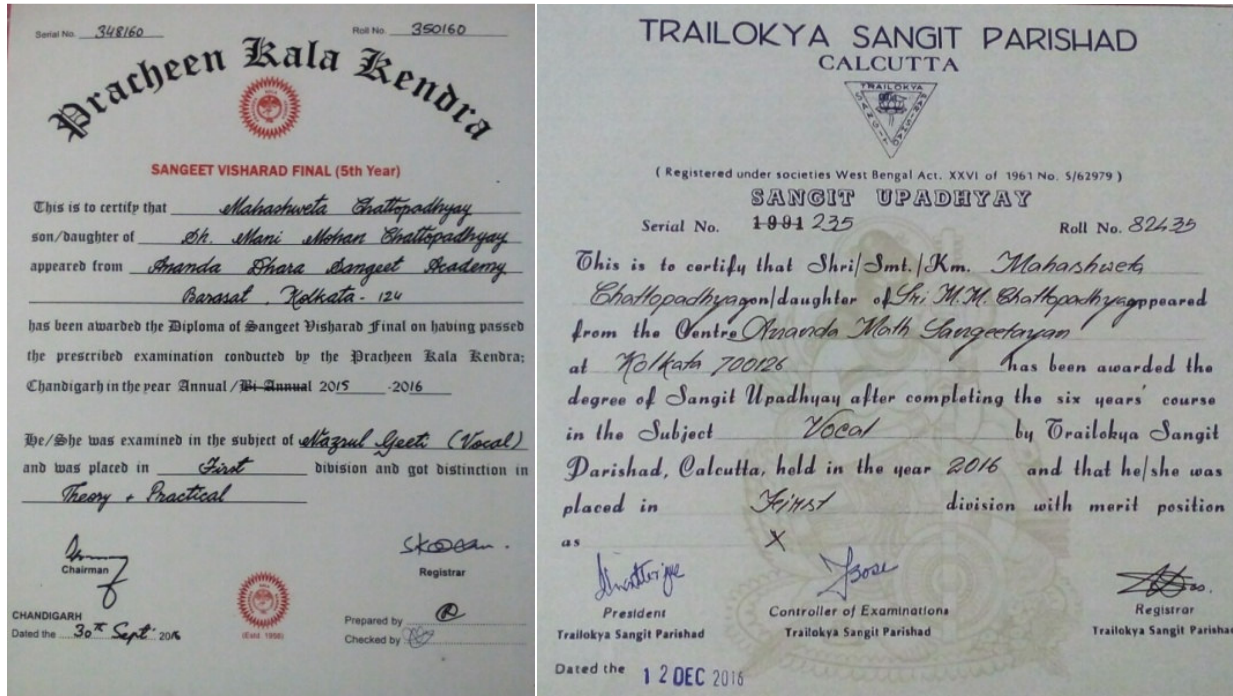 Serial No. 348160 Roll No. 350160
Pracheen Kala Kendra
SANGEET VISHARAD FINAL (5th Year)
This is to certify that Mahashweta Chattopadhyay
son/daughter of Sh. Mani Mohan Chattopadhyay
appeared from Ananda Dhara Sangeet Academy
Barasat, Kolkata - 124
has been awarded the Diploma of Sangeet Visharad Final on having passed
the prescribed examination conducted by the Pracheen Kala Kendra;
Chandigarh in the year Annual / Bi-Annual 2015 -2016
He/She was examined in the subject of Nazrul Geeti (Vocal)
and was placed in First division and got distinction in
Theory + Practical
Chairman
Registrar
CHANDIGARH
Dated the 30th Sept. 2016
(Estd. 1956)
Prepared by
Checked by
TRAILOKYA SANGIT PARISHAD
CALCUTTA
TRAILOKYA
SANGIT
PARISHAD
( Registered under societies West Bengal Act. XXVI of 1961 No. S/62979 )
SANGIT UPADHYAY
Serial No. 1991 235 Roll No. 82435
This is to certify that Shri/Smt./Km. Mahashweta
Chattopadhyay son/daughter of Sri M.M. Chattopadhyay appeared
from the Centre Ananda Math Sangeetayan
at Kolkata 700126 has been awarded the
degree of Sangit Upadhyay after completing the six years' course
in the Subject Vocal by Trailokya Sangit
Parishad, Calcutta, held in the year 2016 and that he/she was
placed in First division with merit position
as X
Bose
President Controller of Examinations Registrar
Trailokya Sangit Parishad Trailokya Sangit Parishad Trailokya Sangit Parishad
Dated the 12 DEC 2016